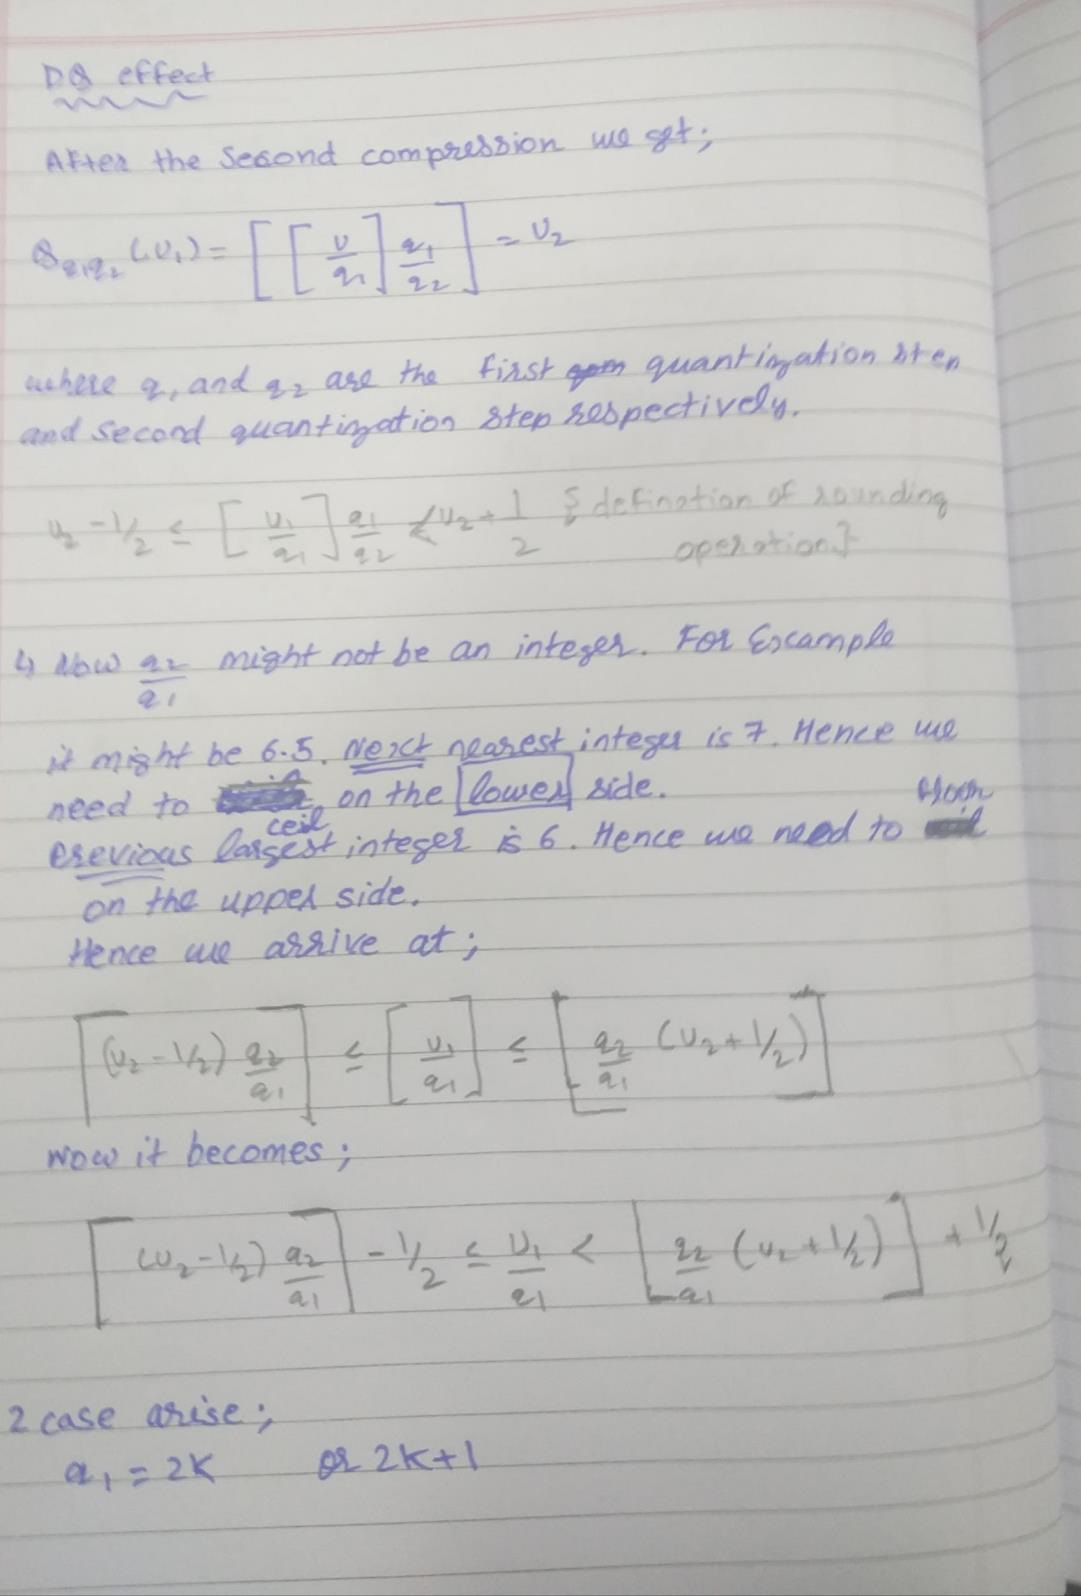 DQ effect
After the second compression we get;
Q_{q1q2}(u₁) = [[u/q₁] q₁/q₂] = u₂
where q₁ and q₂ are the first quantization step
and second quantization step respectively.
u₂ - 1/2 ≤ [u₁/q₁] q₁/q₂ < u₂ + 1/2 {defination of rounding
operation}
↳ Now q₂/q₁ might not be an integer. For Example
it might be 6.5. Next nearest integer is 7. Hence we
need to ceil on the lower side.
Previous largest integer is 6. Hence we need to floor
on the upper side.
Hence we arrive at;
⌈(u₂ - 1/2) q₂/q₁⌉ ≤ [u₁/q₁] ≤ ⌊q₂/q₁ (u₂ + 1/2)⌋
Now it becomes;
⌈(u₂ - 1/2) q₂/q₁⌉ - 1/2 ≤ u₁/q₁ < ⌊q₂/q₁ (u₂ + 1/2)⌋ + 1/2
2 case arise;
q₁ = 2K or 2K+1